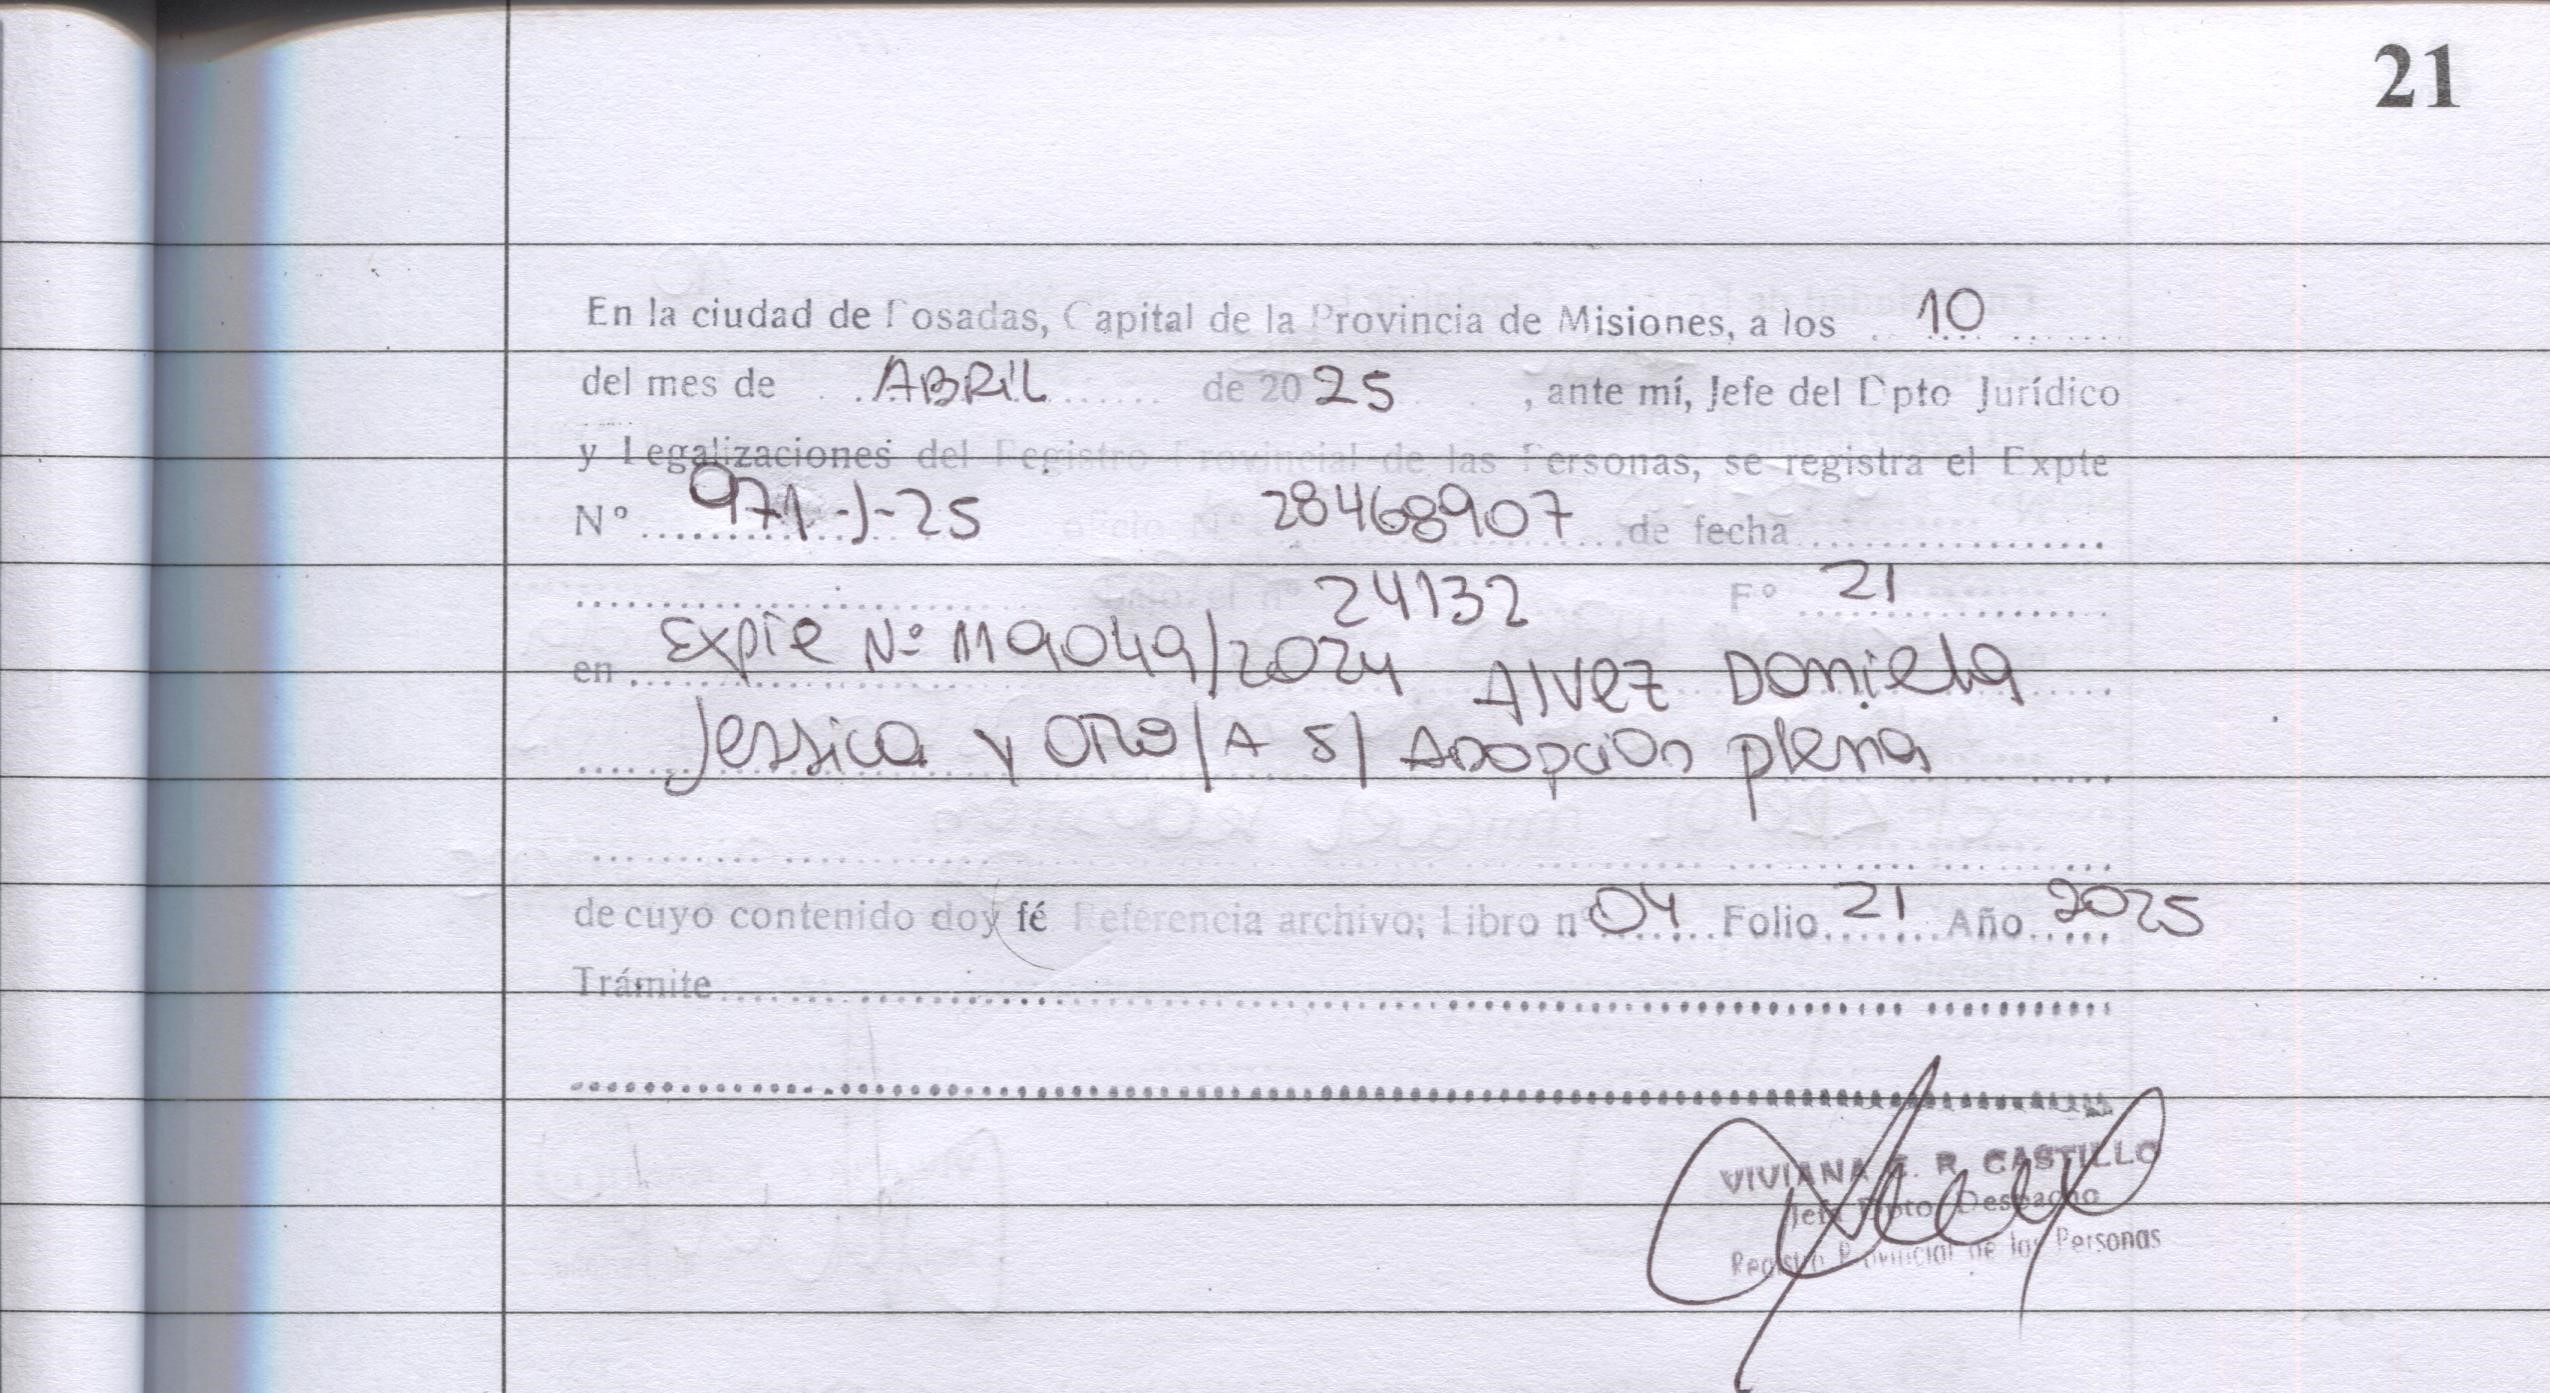 21
En la ciudad de Posadas, Capital de la Provincia de Misiones, a los 10
del mes de ABRIL de 2025, ante mí, Jefe del Dpto Jurídico
y Legalizaciones del Registro Provincial de las Personas, se registra el Expte
Nº 971-J-25 oficio Nº 28468907 de fecha
nº 24132 Fº 21
en Expte Nº 119049/2024 Alvez Daniela
Jessica y OTRO/A S/ Adopción plena
de cuyo contenido doy fé Referencia archivo: Libro nº 04 Folio 21 Año 2025
Trámite
VIVIANA E. R. CASTILLO
Jefe Dpto Despacho
Registro Provincial de las Personas